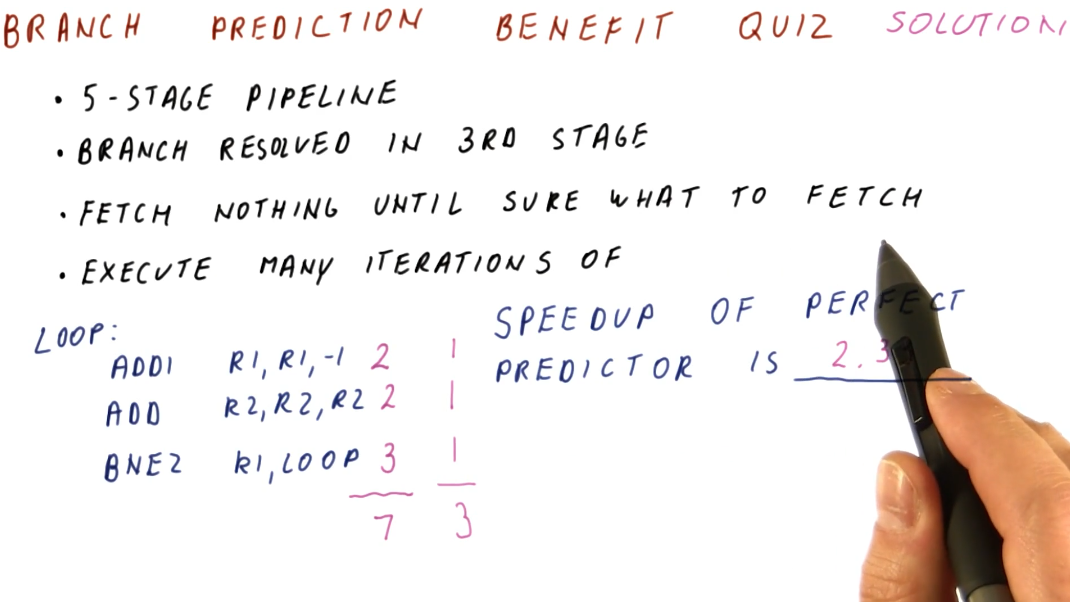 BRANCH PREDICTION BENEFIT QUIZ SOLUTION
• 5-STAGE PIPELINE
• BRANCH RESOLVED IN 3RD STAGE
• FETCH NOTHING UNTIL SURE WHAT TO FETCH
• EXECUTE MANY ITERATIONS OF
LOOP:
ADDI R1, R1, -1 2 1
ADD R2, R2, R2 2 1
BNEZ R1, LOOP 3 1
7 3
SPEEDUP OF PERFECT
PREDICTOR IS 2.3